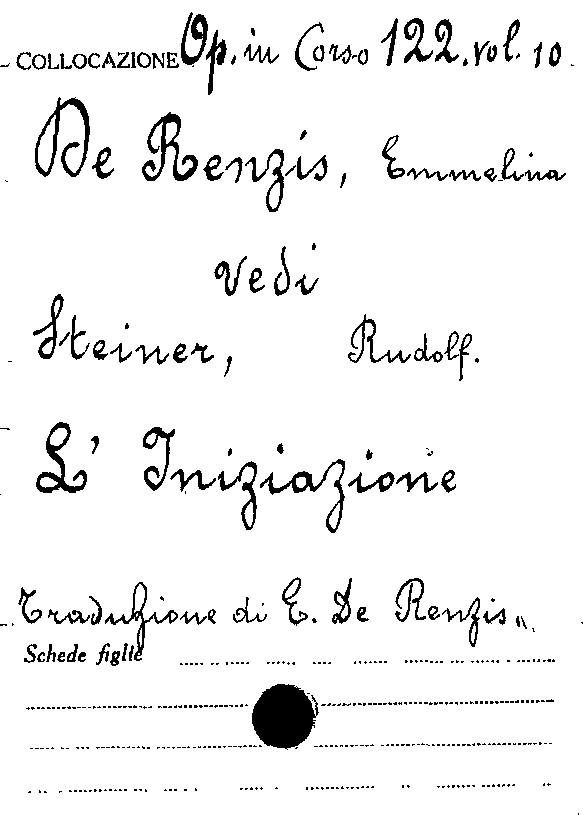 COLLOCAZIONE Op. in Corso 122. vol. 10
De Renzis, Emmelina
Vedi
Steiner, Rudolf.
L' Iniziazione
Traduzione di E. De Renzis„
Schede figlie